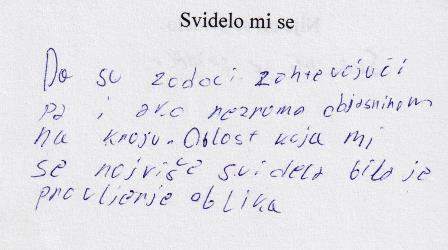 Svidelo mi se
Da su zadaci zahtevajući
pa i ako neznamo objasnimo
na kraju. Oblast koja mi
se najviše svidela bila je
pravljenje oblika